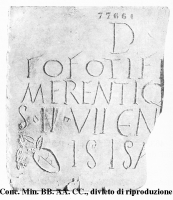 77661
D
FOFOTIF
MERENTIC
S II VII EN
ISISA
Conc. Min. BB. AA. CC., divieto di riproduzione